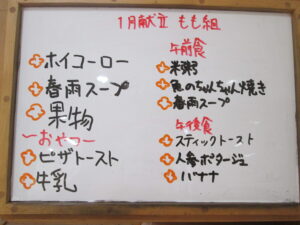 1月献立 もも組
ホイコーロー
春雨スープ
果物
〜おやつ〜
ピザトースト
牛乳
午前食
米粥
魚のちゃんちゃん焼き
春雨スープ
午後食
スティックトースト
人参ポタージュ
バナナ